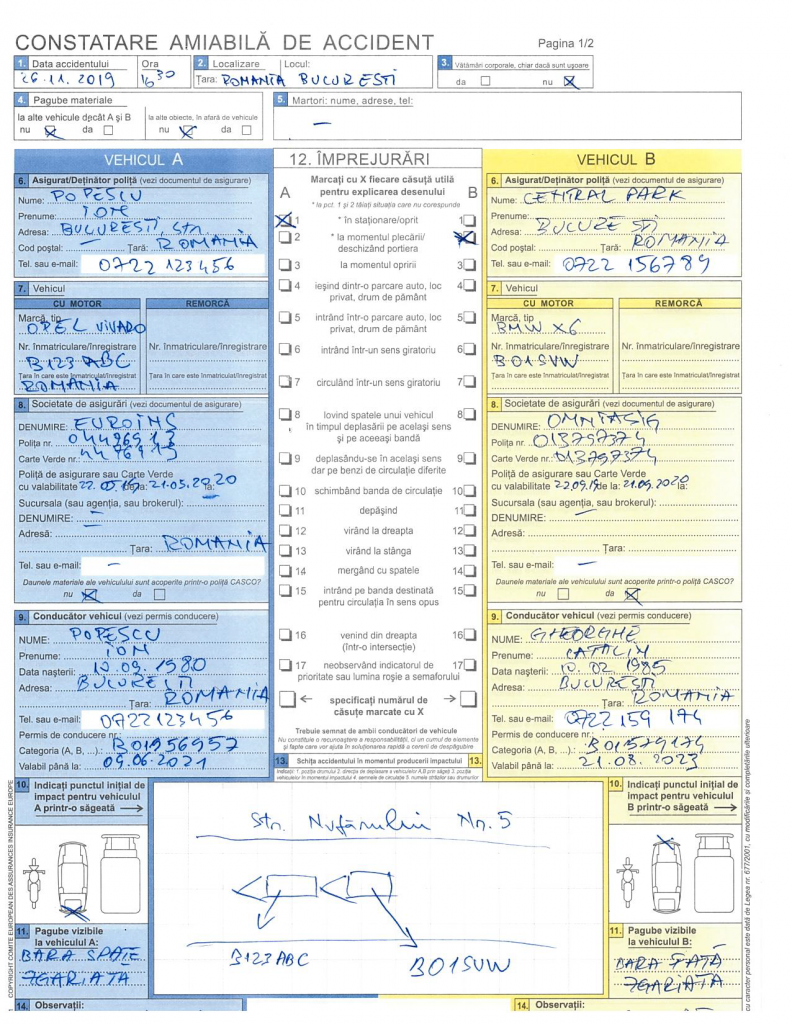 CONSTATARE AMIABILĂ DE ACCIDENT
Pagina 1/2
1. Data accidentului Ora
26.11.2019 16 30
2. Localizare Locul:
Țara: ROMANIA BUCURESTI
3. Vătămări corporale, chiar dacă sunt ușoare
da nu X
4. Pagube materiale
la alte vehicule decât A și B
nu X da
la alte obiecte, în afară de vehicule
nu X da
5. Martori: nume, adrese, tel:
—
VEHICUL A
6. Asigurat/Deținător poliță (vezi documentul de asigurare)
Nume: POPESCU
Prenume: ION
Adresa: BUCURESTI, Str.
Cod poștal: — Țară: ROMANIA
Tel. sau e-mail: 0722 123456
7. Vehicul
CU MOTOR REMORCĂ
Marcă, tip
OPEL VIVARO
Nr. înmatriculare/înregistrare Nr. înmatriculare/înregistrare
B123 ABC
Țara în care este înmatriculat/înregistrat Țara în care este înmatriculat/înregistrat
ROMANIA
8. Societate de asigurări (vezi documentul de asigurare)
DENUMIRE: EUROINS
Polița nr.
Carte Verde nr.:
Poliță de asigurare sau Carte Verde
cu valabilitate de la: 21.05.2020 la:
Sucursala (sau agenția, sau brokerul): —
DENUMIRE: —
Adresă:
Țara: ROMANIA
Tel. sau e-mail: —
Daunele materiale ale vehiculului sunt acoperite printr-o poliță CASCO?
nu X da
9. Conducător vehicul (vezi permis conducere)
NUME: POPESCU
Prenume: ION
Data nașterii: 10.09.1980
Adresa: BUCURESTI
Țara: ROMANIA
Tel. sau e-mail: 0722123456
Permis de conducere nr.:
Categoria (A, B, ...): B01956957
Valabil până la: 09.06.2021
10. Indicați punctul inițial de
impact pentru vehiculul
A printr-o săgeată →
11. Pagube vizibile
la vehiculul A:
BARA SPATE
ZGARIATA
14. Observații:
12. ÎMPREJURĂRI
Marcați cu X fiecare căsuță utilă
pentru explicarea desenului
A B
* la pct. 1 și 2 tăiați situația care nu corespunde
X 1 * în staționare/oprit 1
2 * la momentul plecării/ X
deschizând portiera
3 la momentul opririi 3
4 ieșind dintr-o parcare auto, loc 4
privat, drum de pământ
5 intrând într-o parcare auto, loc 5
privat, drum de pământ
6 intrând într-un sens giratoriu 6
7 circulând într-un sens giratoriu 7
8 lovind spatele unui vehicul 8
în timpul deplasării pe același sens
și pe aceeași bandă
9 deplasându-se în același sens 9
dar pe benzi de circulație diferite
10 schimbând banda de circulație 10
11 depășind 11
12 virând la dreapta 12
13 virând la stânga 13
14 mergând cu spatele 14
15 intrând pe banda destinată 15
pentru circulația în sens opus
16 venind din dreapta 16
(într-o intersecție)
17 neobservând indicatorul de 17
prioritate sau lumina roșie a semaforului
← specificați numărul de →
căsuțe marcate cu X
Trebuie semnat de ambii conducători de vehicul
Nu constituie o recunoaștere a responsabilității, ci un cumul de elemente
și fapte care vor ajuta în soluționarea rapidă a cererii de despăgubire
13. Schița accidentului în momentul producerii impactului 13.
Str. Nufărului Nr. 5
B123ABC B01SUW
VEHICUL B
6. Asigurat/Deținător poliță (vezi documentul de asigurare)
Nume: CENTRAL PARK
Prenume:
Adresa: BUCURESTI
Cod poștal: Țară: ROMANIA
Tel. sau e-mail: 0722 156789
7. Vehicul
CU MOTOR REMORCĂ
Marcă, tip
BMW X6
Nr. înmatriculare/înregistrare Nr. înmatriculare/înregistrare
B01SUW
Țara în care este înmatriculat/înregistrat Țara în care este înmatriculat/înregistrat
8. Societate de asigurări (vezi documentul de asigurare)
DENUMIRE: OMNIASIG
Polița nr. 013797374
Carte Verde nr.: 013797374
Poliță de asigurare sau Carte Verde
cu valabilitate 22.09.19 de la: 21.09.2020 la:
Sucursala (sau agenția, sau brokerul):
DENUMIRE: —
Adresă:
Țara:
Tel. sau e-mail: —
Daunele materiale ale vehiculului sunt acoperite printr-o poliță CASCO?
nu da X
9. Conducător vehicul (vezi permis conducere)
NUME: GHEORGHE
Prenume: CATALIN
Data nașterii: 10.02.1985
Adresa: BUCURESTI
Țara: ROMANIA
Tel. sau e-mail: 0722 159 174
Permis de conducere nr.:
Categoria (A, B, ...): B01579174
Valabil până la: 21.08.2023
10. Indicați punctul inițial de
impact pentru vehiculul
B printr-o săgeată →
11. Pagube vizibile
la vehiculul B:
BARA FATĂ
ZGARIATA
14. Observații:
COPYRIGHT COMITE EUROPEEN DES ASSURANCES INSURANCE EUROPE
cu caracter personal este dată de Legea nr. 677/2001, cu modificările și completările ulterioare